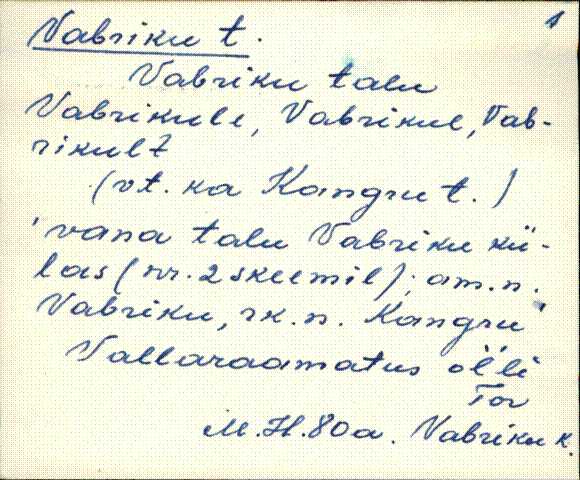 1
Vabriku t.
Vabriku talu
Vabrikule, Vabrikul, Vab-
rikult
(vt. ka Kangru t.)
'vana talu Vabriku kü-
las (nr. 2 skeemil); am.n.
Vabriku, rk.n. Kangru'
Vallaraamatus öl'li
Tor
M.H. 80 a. Vabriku k.